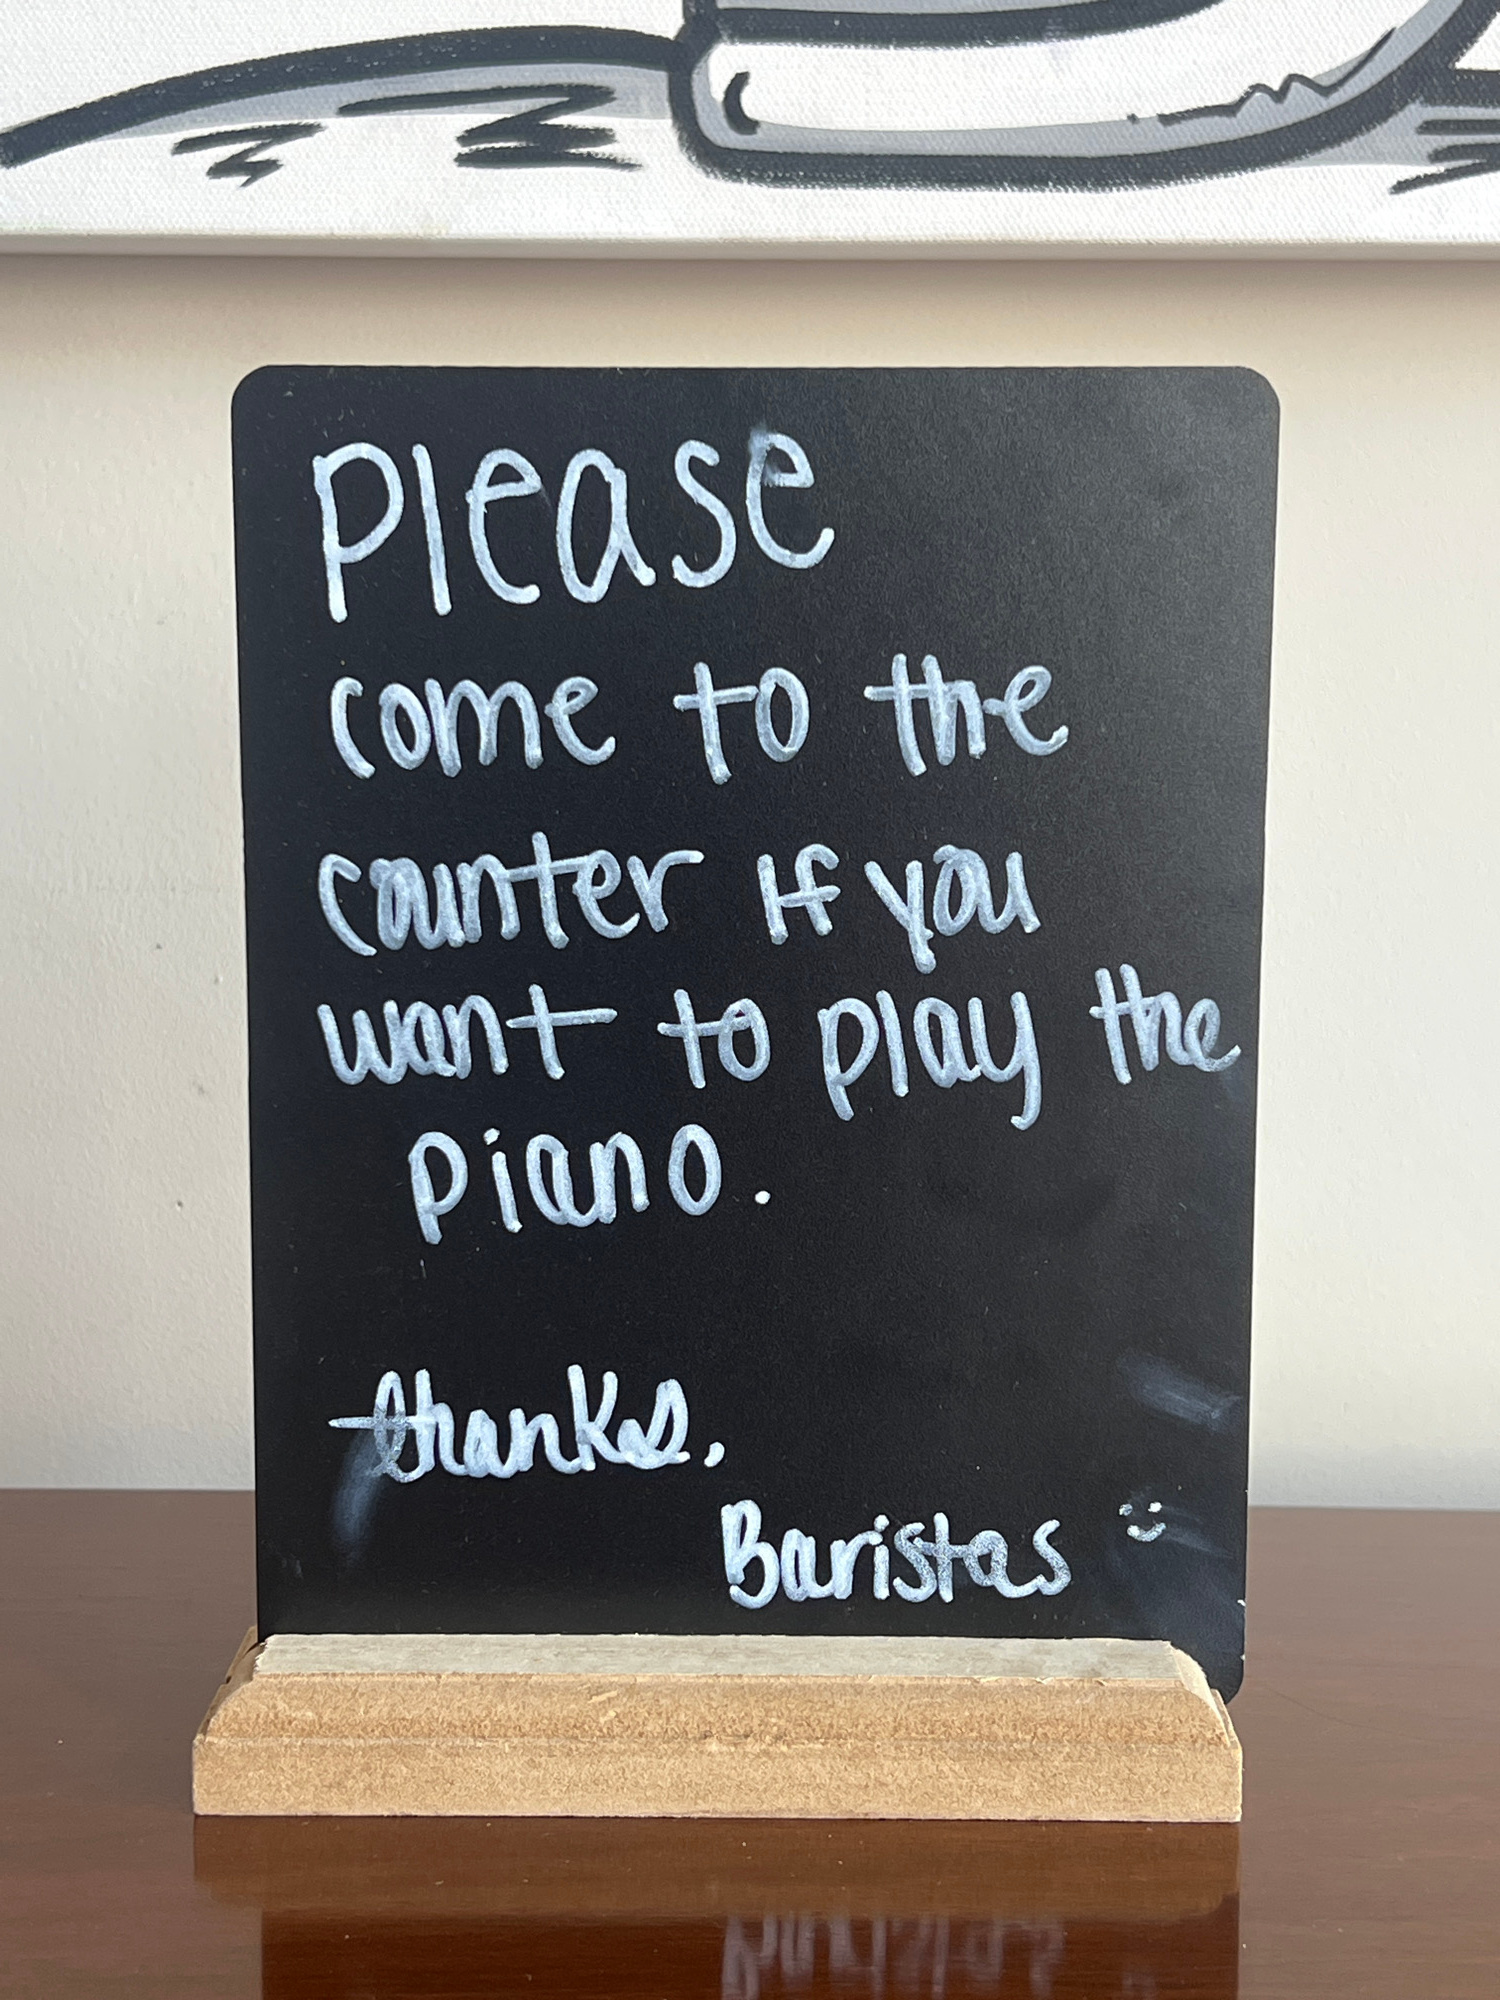 Please
come to the
counter if you
want to play the
piano.
thanks,
Baristas :)